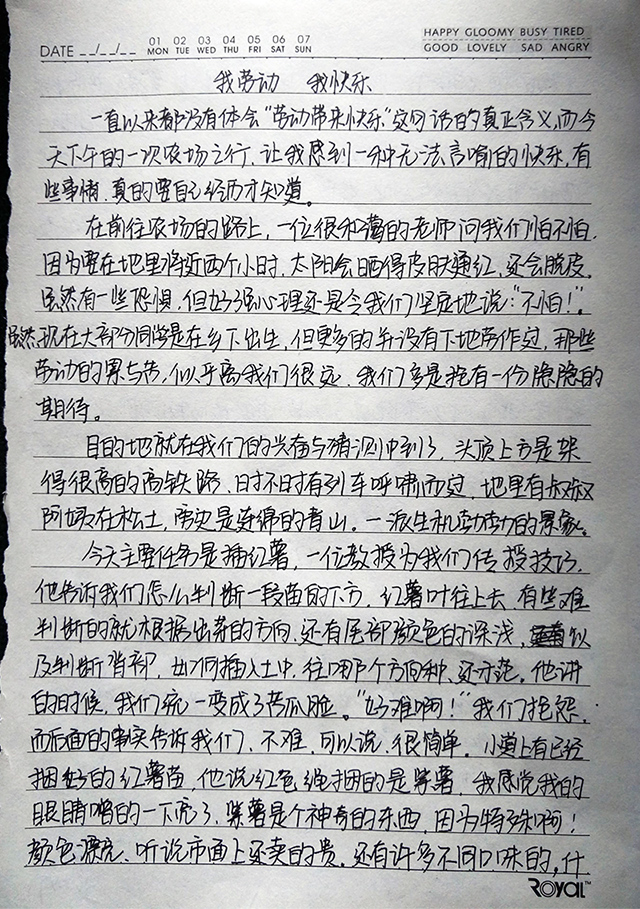 DATE _ _/_ _/_ _
01 02 03 04 05 06 07
MON TUE WED THU FRI SAT SUN
HAPPY GLOOMY BUSY TIRED
GOOD LOVELY SAD ANGRY
我劳动 我快乐
一直以来都没有体会“劳动带来快乐”这句话的真正含义,而今
天下午的一次农场之行,让我感到一种无法言喻的快乐,有
些事情,真的要自己经历才知道。
在前往农场的路上,一位很和蔼的老师问我们怕不怕.
因为要在地里将近两个小时,太阳会晒得皮肤通红,还会脱皮.
虽然有一些恐惧,但好强心理还是令我们坚定地说:“不怕!”.
虽然,现在大部分同学是在乡下出生,但更多的并没有下地劳作过,那些
劳动的累与苦,似乎离我们很远.我们多是抱有一份隐隐的
期待。
目的地就在我们的兴奋与猜测中到了,头顶上方是架
得很高的高铁路.时不时有列车呼啸而过,地里有叔叔
阿姨在松土,旁边是连绵的青山.一派生机勃勃的景象。
今天主要任务是插红薯,一位教授为我们传授技巧.
他告诉我们怎么判断一段苗的下方.红薯叶往上去,有些难
判断的就根据出芽的方向.还有尾部颜色的深浅,以
及判断背部,如何插入土中,往哪个方向种,还示范。他讲
的时候,我们统一变成了苦瓜脸。“好难啊!”我们抱怨.
而后面的事实告诉我们,不难,可以说,很简单.小道上有已经
捆好的红薯苗,他说红色绳捆的是紫薯,我感觉我的
眼睛噌的一下亮了,紫薯是个神奇的东西,因为特殊啊!
颜色漂亮、听说市面上还卖的贵.还有许多不同口味的,什
ROYAL™